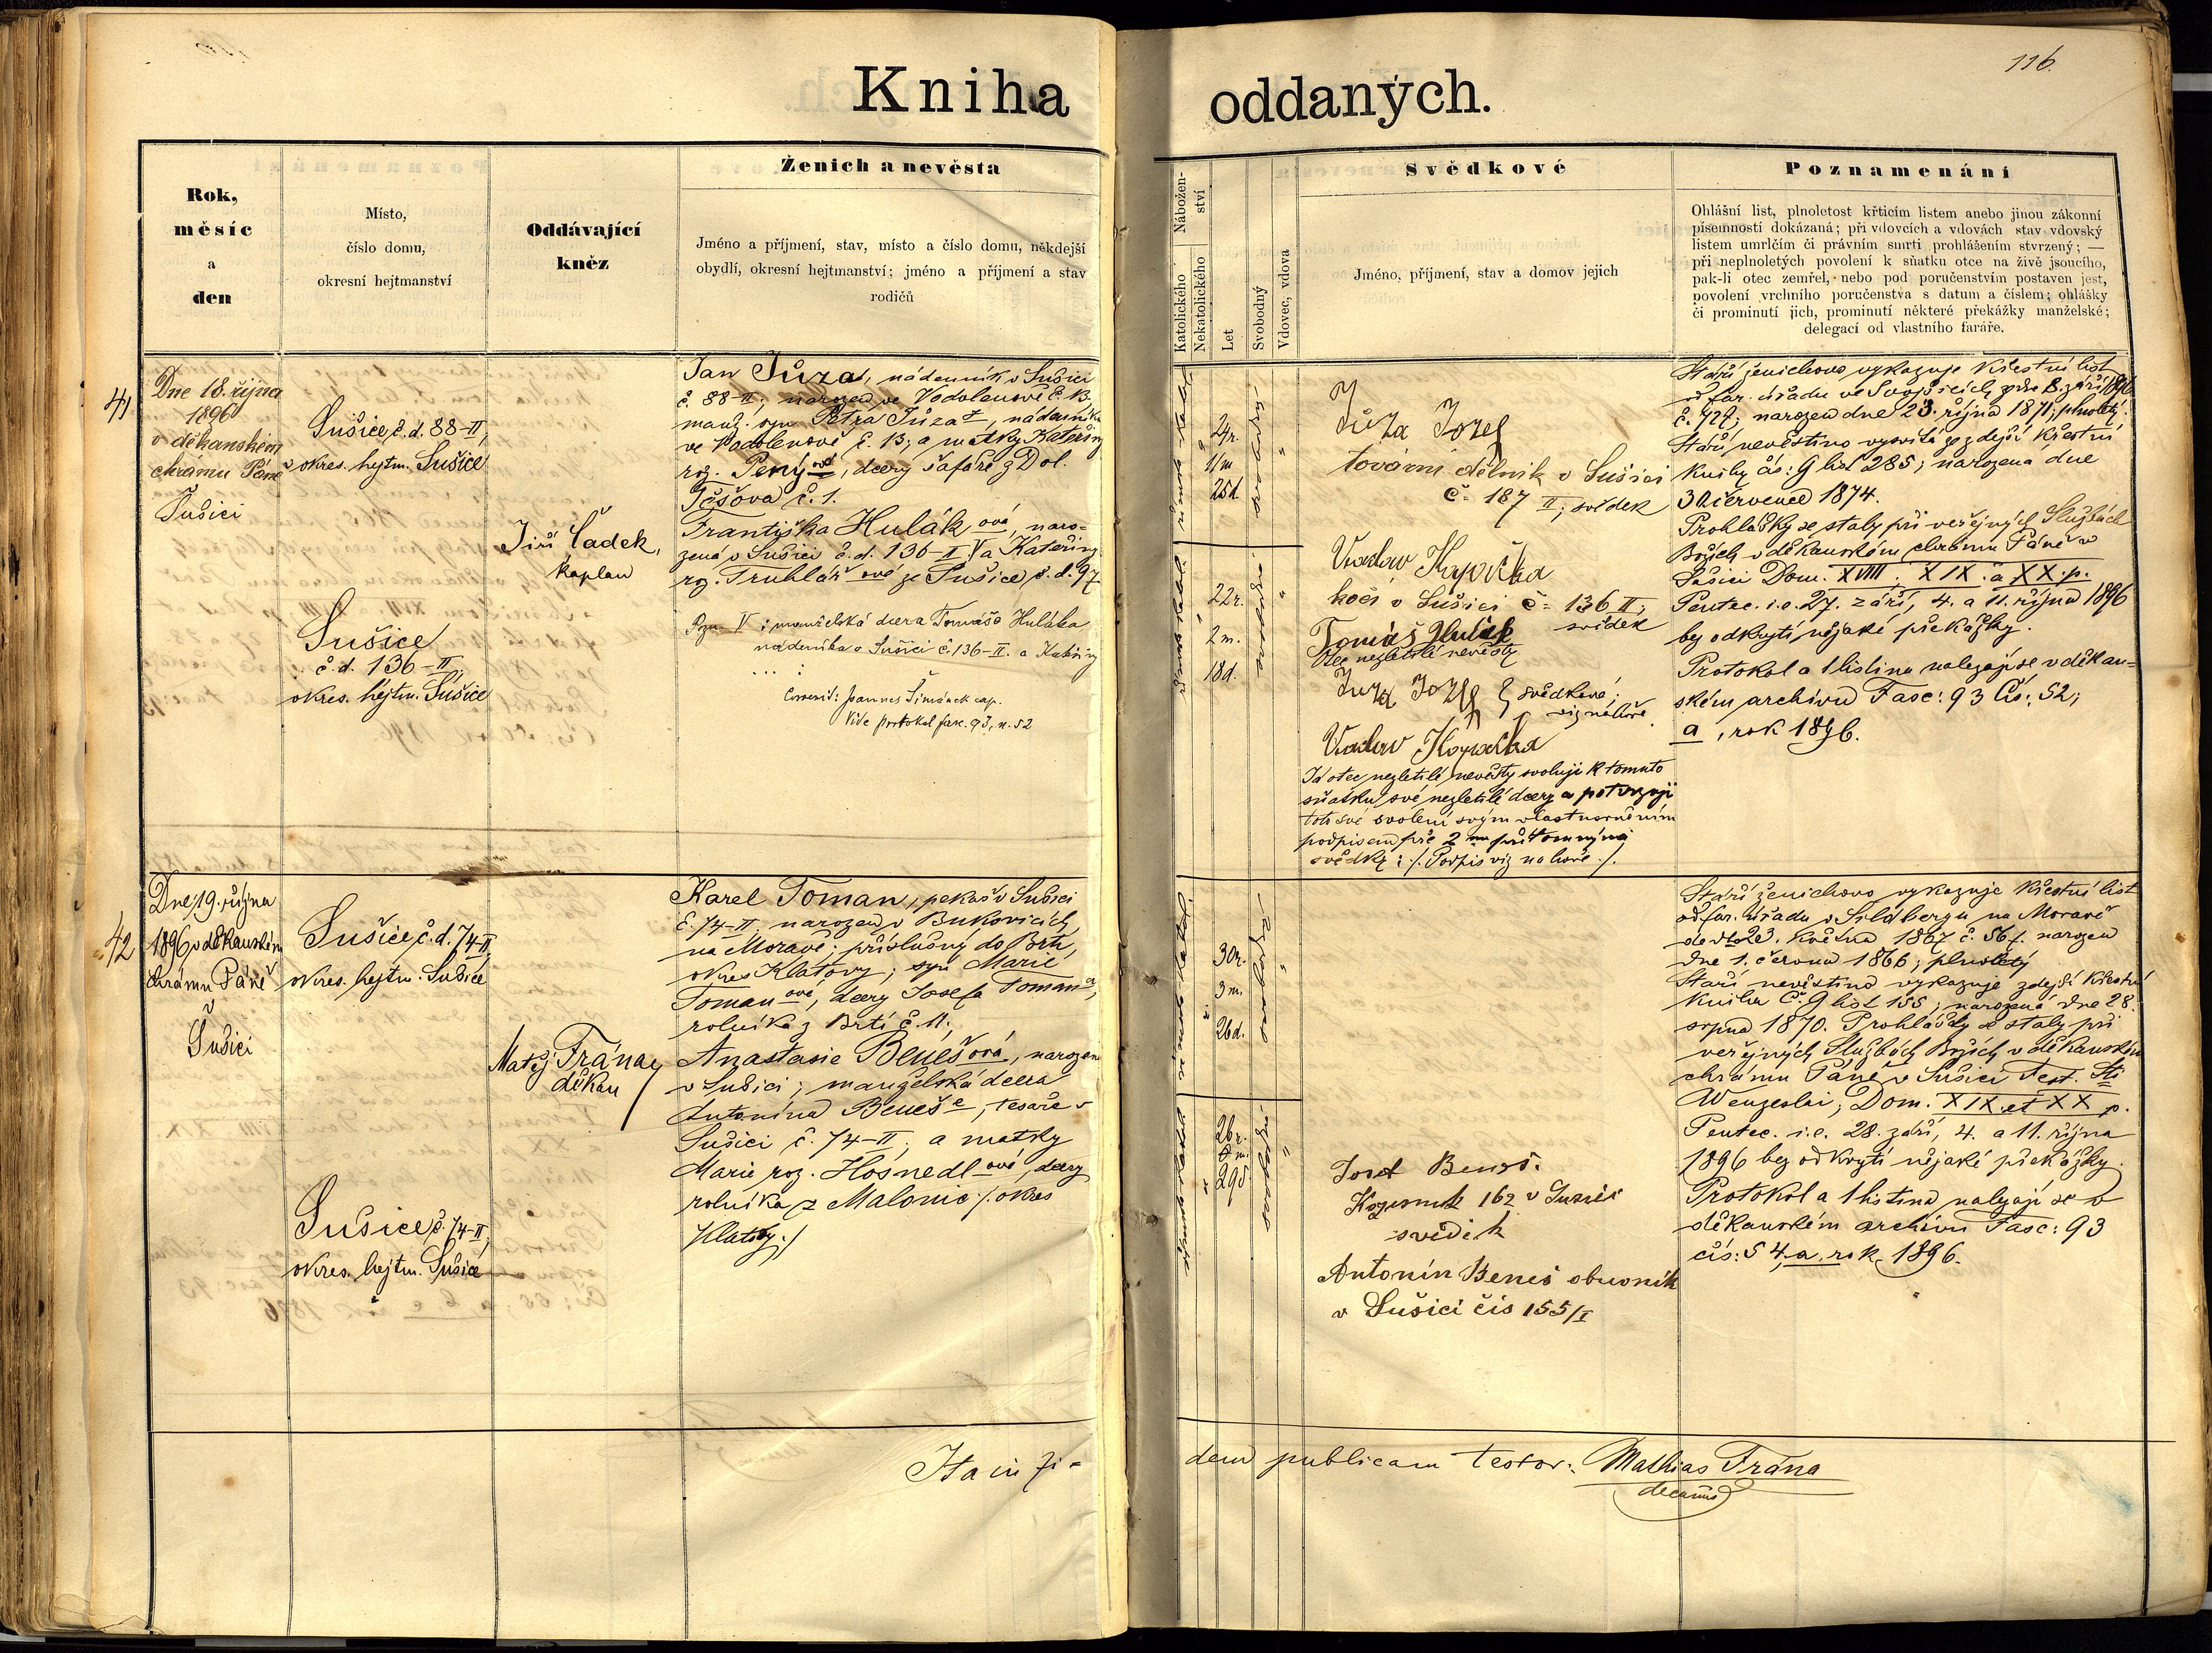 116.
Kniha oddaných.
Rok,
měsíc
a
den
Místo,
číslo domu,
okresní hejtmanství
Oddávající
kněz
Ženich a nevěsta
Jméno a příjmení, stav, místo a číslo domu, někdejší
obydlí, okresní hejtmanství; jméno a příjmení a stav
rodičů
Nábožen-
ství
Katolického
Nekatolického
Let
Svobodný
Vdovec, vdova
Svědkové
Jméno, příjmení, stav a domov jejich
Poznamenání
Ohlášní list, plnoletost křticím listem anebo jinou zákonní
písemností dokázaná; při vdovcích a vdovách stav vdovský
listem umrlčím či právním smrti prohlášením stvrzený; —
při neplnoletých povolení k sňatku otce na živě jsoucího,
pak-li otec zemřel, nebo pod poručenstvím postaven jest,
povolení vrchního poručenstva s datum a číslem; ohlášky
či prominutí jich, prominutí některé překážky manželské;
delegací od vlastního faráře.
41
Dne 18. října
1896
v děkanském
chrámu Páně v
Sušici
Sušice č.d. 88-II,
okres. hejtm. Sušice
Sušice
č.d. 136-II,
okres. hejtm. Sušice
Jiří Čadek,
kaplan
Jan Jůza, nádenník v Sušici
č. 88-II; narozen ve Vodolenově č. 13,
manž. syn Petra Jůza, nádenníka
ve Vodolenově č. 13; a matky Kateřiny
roz. Pený ové, dcery šafáře z Dol.
Těšova č. 1.
Františka Hulák ová, naro-
zená v Sušici č.d. 136-II V a Kateřiny
roz. Truhlář ové ze Sušice, č.d. 97
Pozn. V: manželská dcera Tomáše Huláka
nádeníka v Sušici č. 136-II. a Kateřiny
Correxit: Joannes Šimánek cap.
Vide protokol fasc. 93, n. 52
24 r.
11 m
25 d.
22 r.
2 m.
18 d.
Jůza Jozef
tovární dělník v Sušici
č. 187 II; svědek
Vaclav Kopička
kočí v Sušici č. 136 II;
svědek
Tomáš Hulak
Otec nezletilé nevěsty
Juza Jozef } svědkové;
viz nahoře.
Vaclav Kopička
Já otec nezletilé nevěsty svoluji k tomuto
sňatku své nezletilé dcery a potvrzuji
toto své svolení svým vlastnoručním
podpisem pře 2 ma přítomnými
svědky: /. Podpis viz nahoře ./.
Stáří ženichovo vykazuje Křestní list
od far. úřadu ve Svojšicích ze dne 8. září 1896
č. 727; narozen dne 23. října 1871; plnoletý.
Stáří nevěstino vysvítá ze zdejší křestní
knihy čís: 9 list 285; narozena dne
30 července 1874.
Prohlášky se staly při veřejných Službách
Božích v děkanském chrámu Páně v
Sušici Dom. XVIII. XIX. a XX. p.
Pentec. i.e. 27. září, 4. a 11. října 1896
bez odkrytí nějaké překážky.
Protokol a 1 listina nalezají se v děkan-
ském archivu Fasc: 93 Čís: 52;
a, rok 1896.
42
Dne 19. října
1896 v děkanském
chrámu Páně v
Sušici
Sušice č.d. 74-II,
okres. hejtm. Sušice
Sušice č. 74-II,
okres. hejtm. Sušice
Matěj Frána,
děkan
Karel Toman, pekař v Sušici
č. 74-II, narozen v Bukovicích
na Moravě; příslušný do Brtí,
okres Klatovy; syn Marie
Toman ové, dcery Josefa Toman a,
rolníka z Brtí č. 11;
Anastasie Beneš ová, narozena
v Sušici; manželská dcera
Antonína Beneš e, tesaře v
Sušici č. 74-II; a matky
Marie roz. Hosnedl ové, dcery
rolníka z Malonic /. okres
Klatovy ./
30 r.
3 m.
26 d.
26 r.
29 d.
Josef Beneš.
162 v Sušici
svědek
Antonín Beneš obuvník
v Sušici čís 155/I
Stáří ženichovo vykazuje Křestní list
od far. úřadu v Sildbergu na Moravě
de dto 23. května 1867 č. 567. narozen
dne 1. června 1866; plnoletý
Stáří nevěstino vykazuje zdejší křestní
kniha Č. 9 list 155; narozená dne 28.
srpna 1870. Prohlášky se staly při
veřejných Službách Božích v děkanském
chrámu Páně v Sušici Fest. Sti
Wenzeslai; Dom. XIX et XX p.
Pentec. i.e. 28. září, 4. a 11. října
1896 bez odkrytí nějaké překážky.
Protokol a 1 listina nalezají se v
děkanském archivu Fasc: 93
čís: 54, a, rok 1896.
Ita in fi-
dem publicam testor: Mathias Frána
decanus